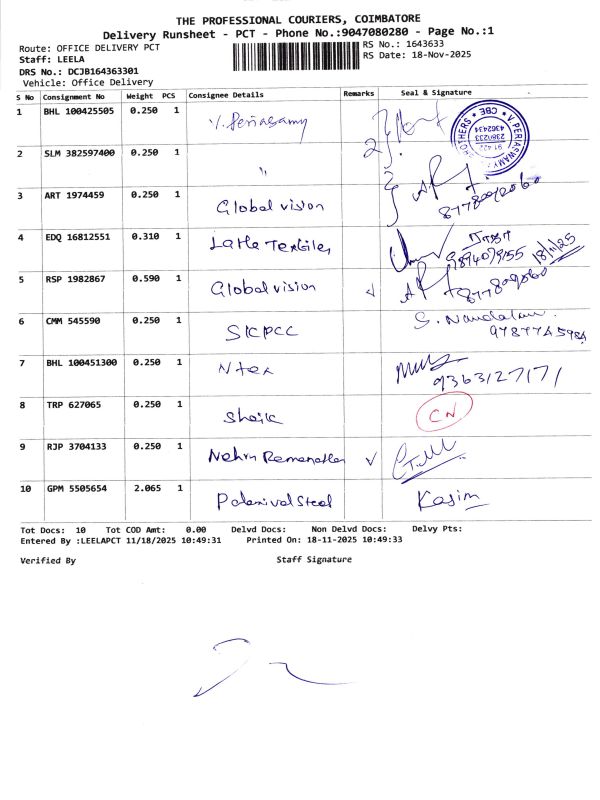 THE PROFESSIONAL COURIERS, COIMBATORE
Delivery Runsheet - PCT - Phone No.:9047080280 - Page No.:1
Route: OFFICE DELIVERY PCT
RS No.: 1643633
Staff: LEELA
RS Date: 18-Nov-2025
DRS No.: DCJB164363301
Vehicle: Office Delivery
S No Consignment No Weight PCS Consignee Details Remarks Seal & Signature
1 BHL 100425505 0.250 1 V. Periasamy
V. PERIASWAMY
CBE
2 SLM 382597400 0.250 1 "
3 ART 1974459 0.250 1 Global vision
4 EDQ 16812551 0.310 1 18/11/25
5 RSP 1982867 0.590 1 Global vision
6 CMM 545590 0.250 1 SICPCC S. Nanda
7 BHL 100451300 0.250 1 Ntex 9363127171
8 TRP 627065 0.250 1 Shaik CN
9 RJP 3704133 0.250 1 Nehru
10 GPM 5505654 2.065 1 Palanival Steel Kasim
Tot Docs: 10 Tot COD Amt: 0.00 Delvd Docs: Non Delvd Docs: Delvy Pts:
Entered By :LEELAPCT 11/18/2025 10:49:31 Printed On: 18-11-2025 10:49:33
Verified By Staff Signature